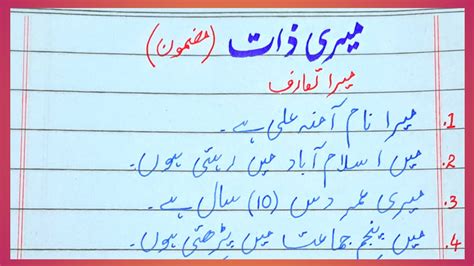 میری ذات (مضمون)
میرا تعارف
1. میرا نام آمنہ علی ہے۔
2. میں اسلام آباد میں رہتی ہوں۔
3. میری عمر دس (10) سال ہے۔
4. میں پنجم جماعت میں پڑھتی ہوں۔